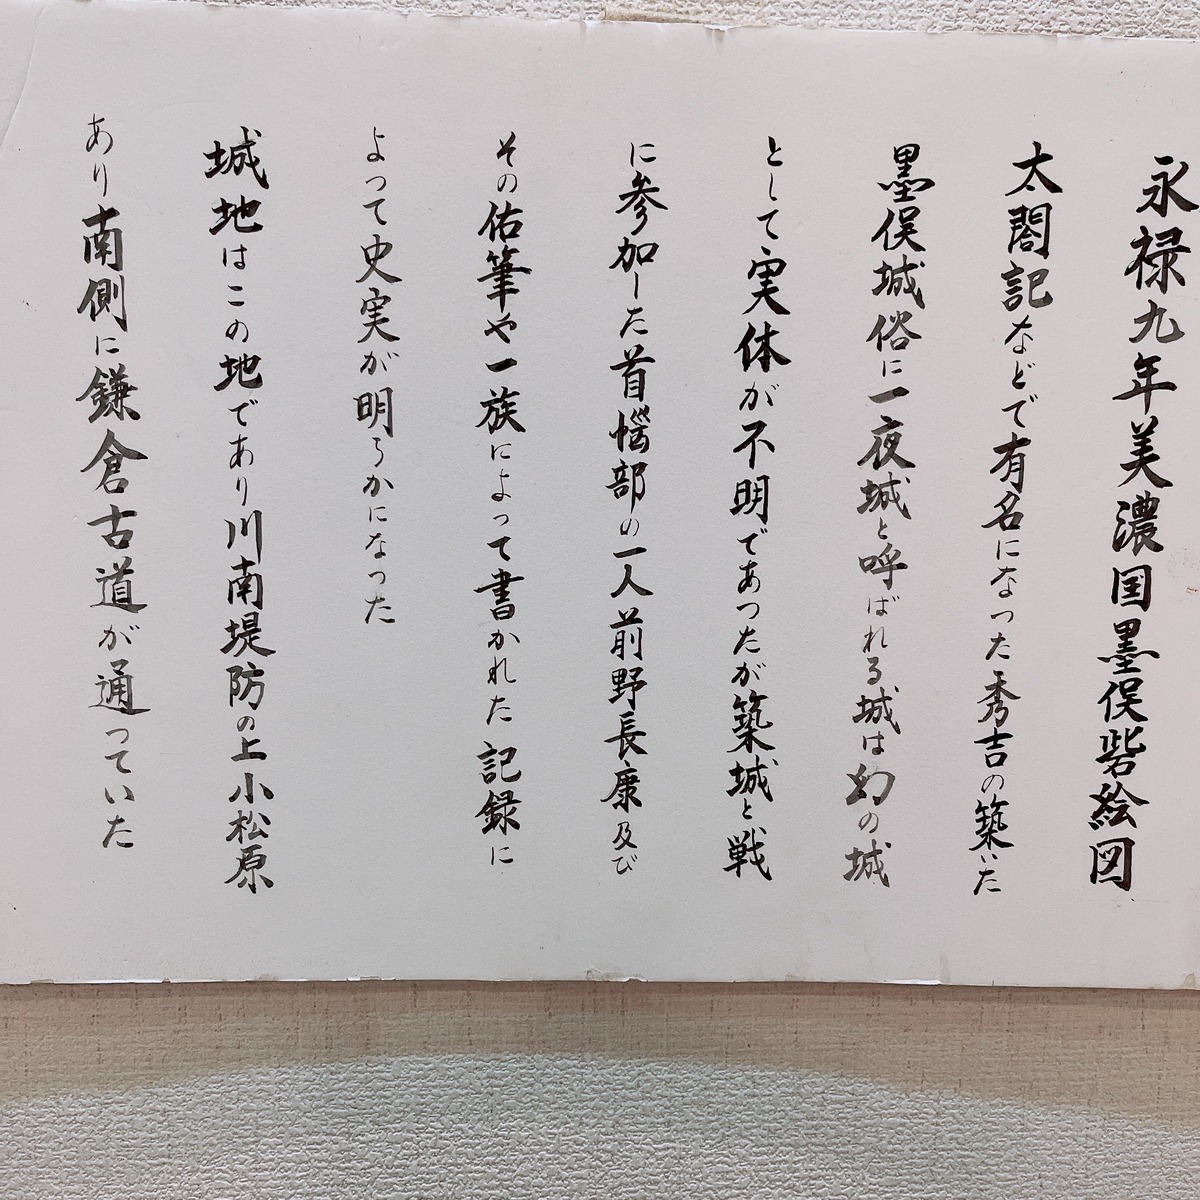 永禄九年美濃国墨俣砦絵図
太閤記などで有名になった秀吉の築いた
墨俣城俗に一夜城と呼ばれる城は幻の城
として実体が不明であつたが築城と戦
に参加した首悩部の一人前野長康及び
その佑筆や一族によって書かれた記録に
よって史実が明らかになった
城地はこの地であり川南堤防の上小松原
あり南側に鎌倉古道が通っていた